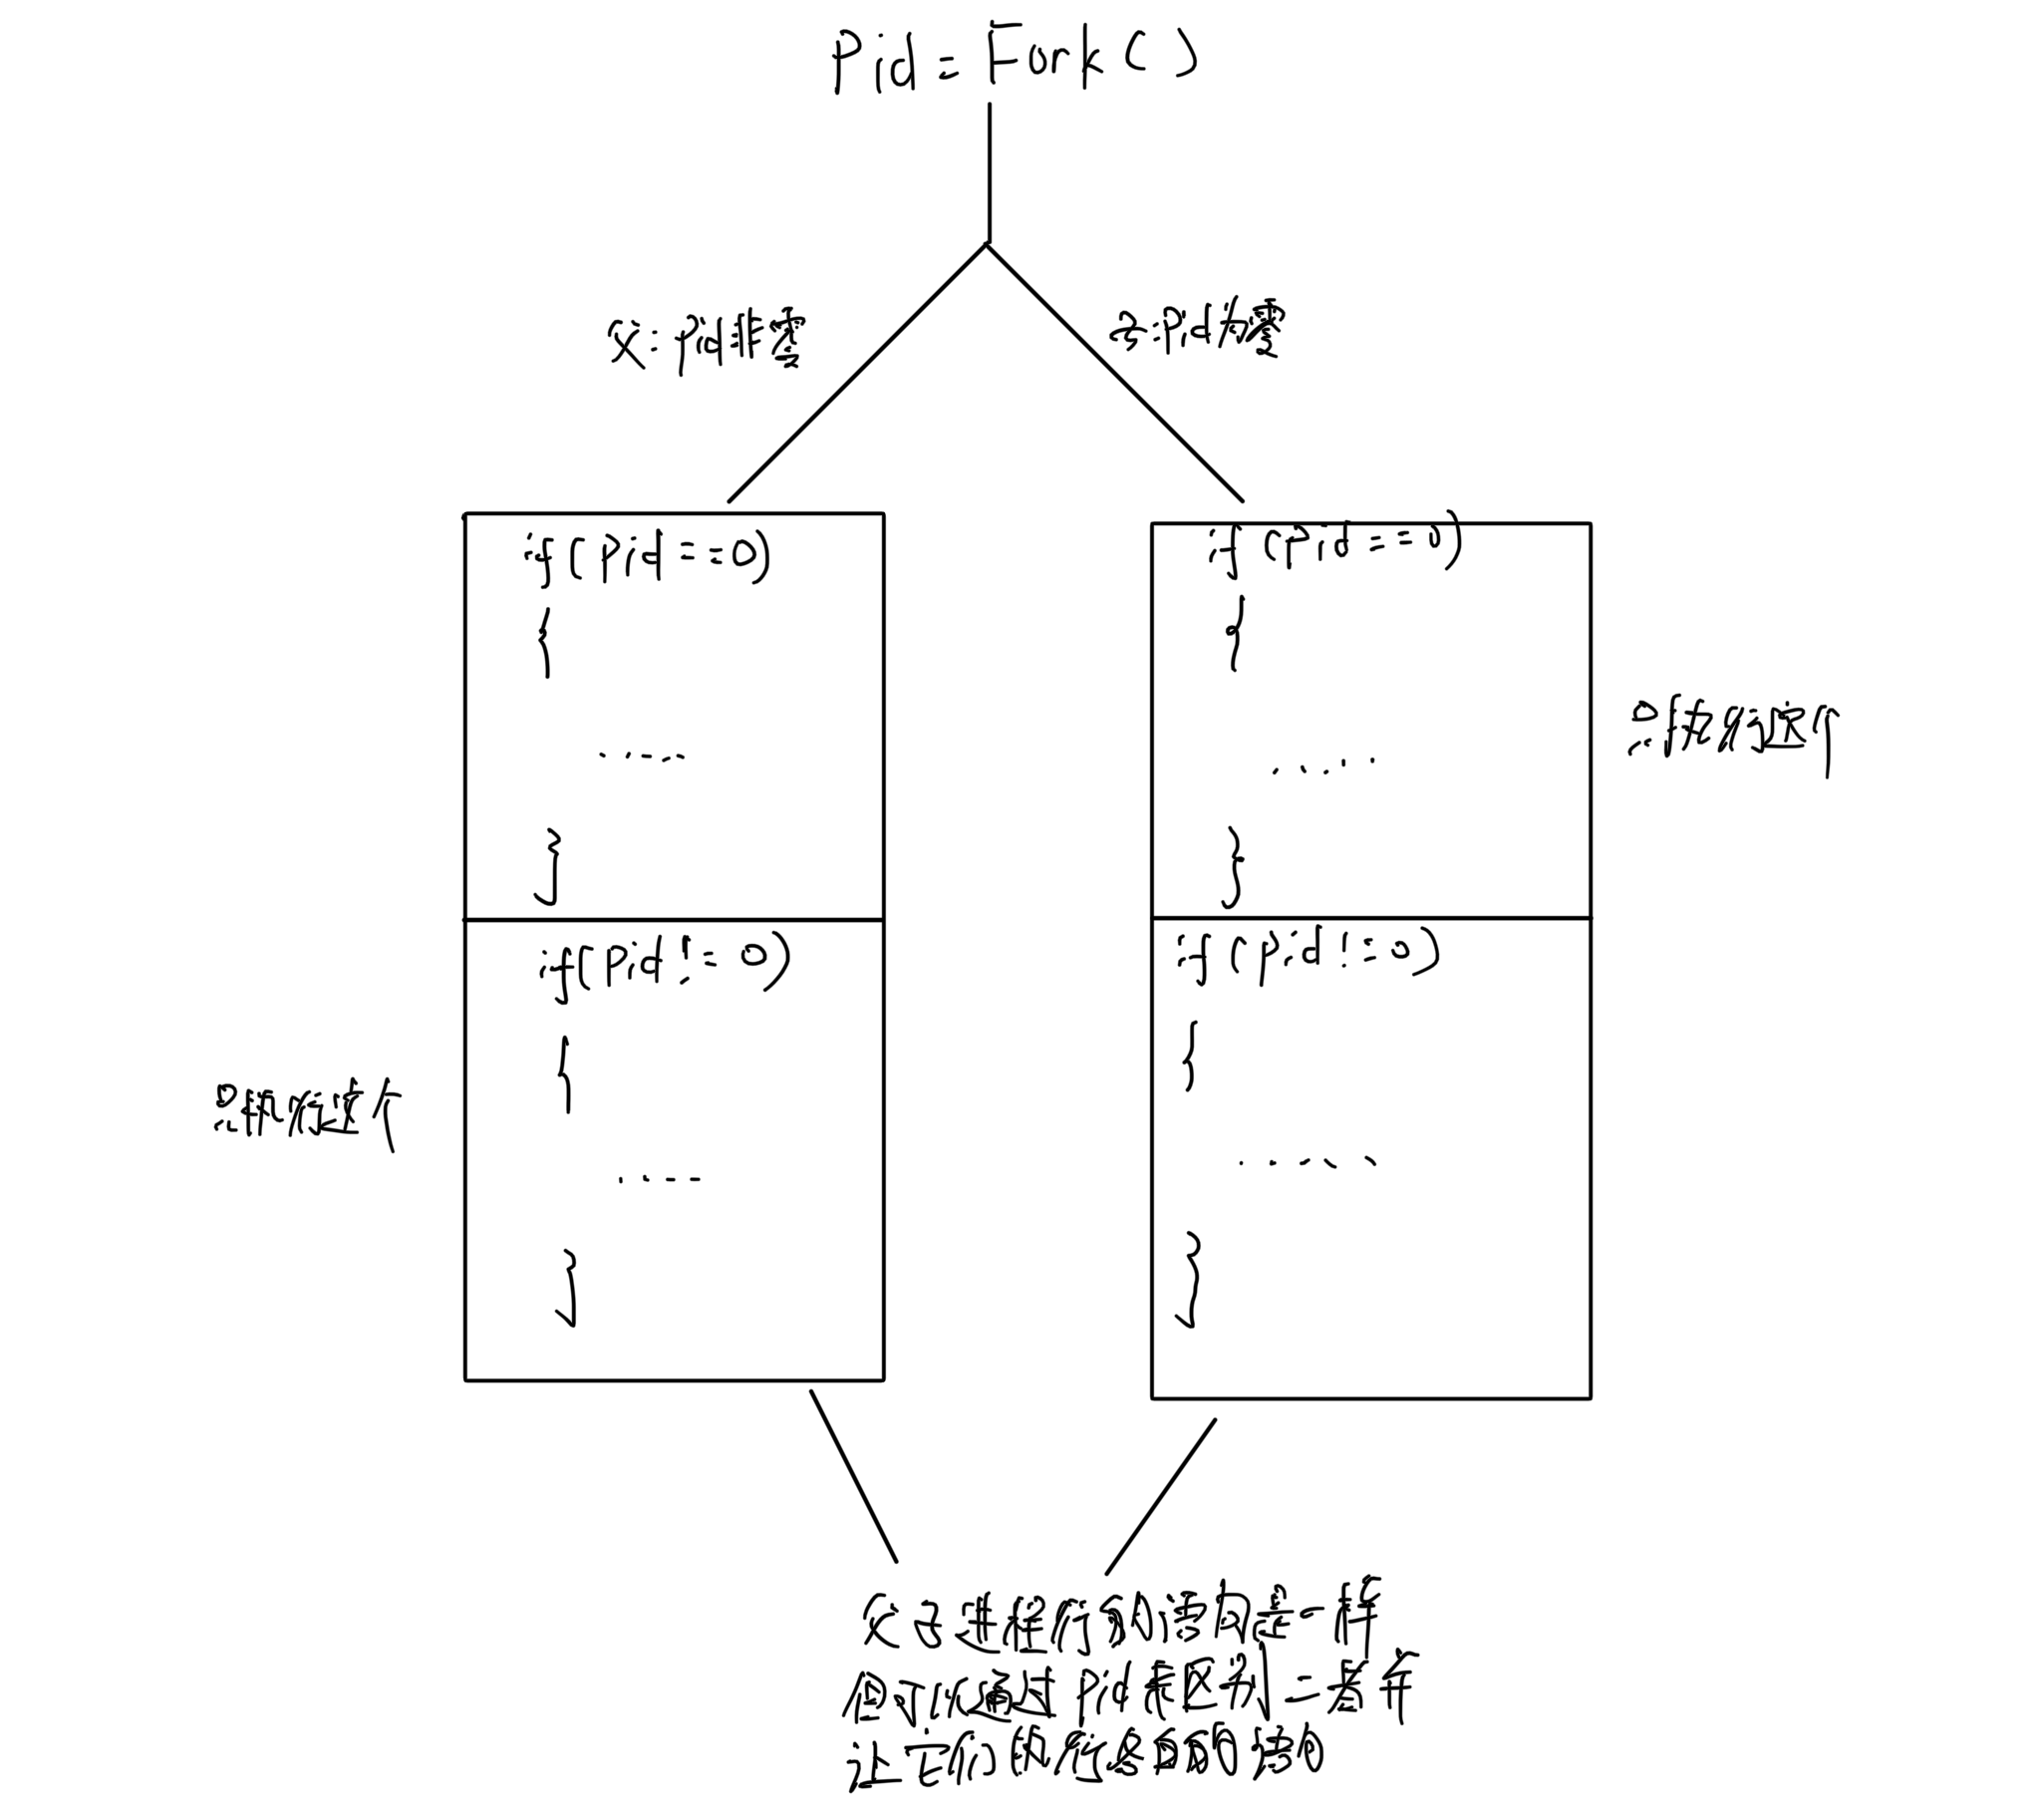 Pid = Fork()
父:pid非零
子:pid为零
if(pid==0)
{
.....
}
if(pid!=0)
{
....
}
只执行这个
if(pid==0)
{
.....
}
只执行这个
if(pid!=0)
{
.....
}
父子进程行的语句是一样
但可以通过pid来区别二者并
让它们执行各自的块